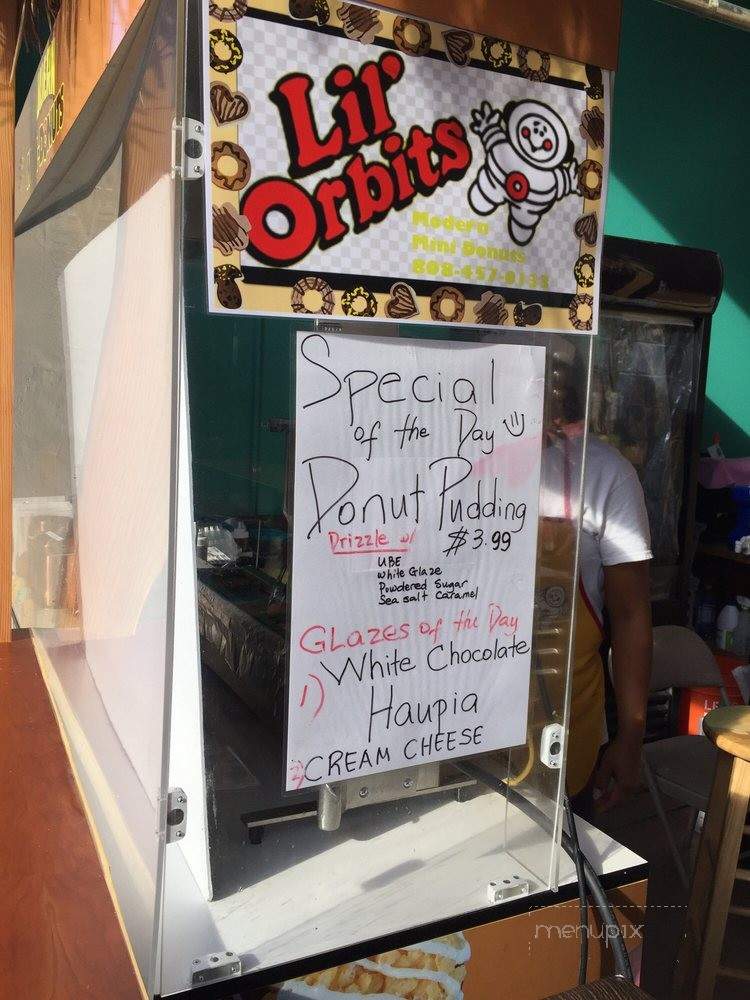 Lil'
Orbits
Modern
Mini Donuts
Special
of the Day
Donut Pudding
Drizzle w/ $3.99
UBE
White Glaze
Powdered Sugar
Sea salt Caramel
Glazes of the Day
1) White Chocolate
Haupia
2) CREAM CHEESE
menupix